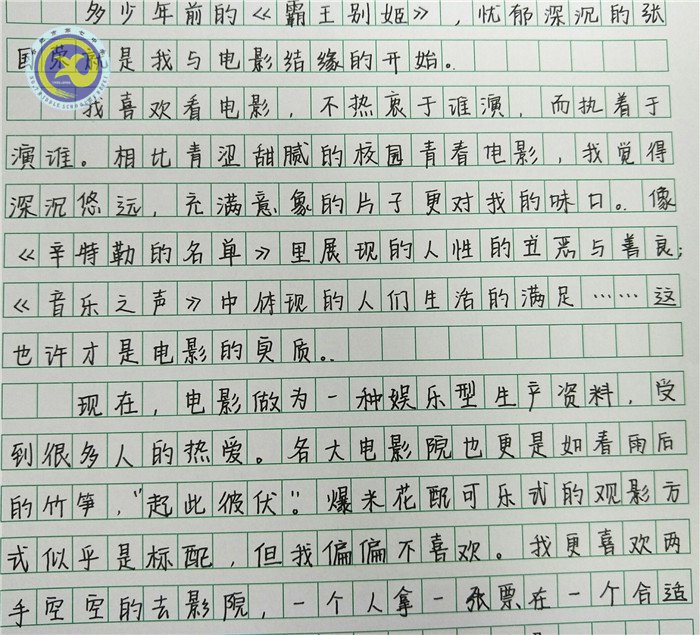 多少年前的《霸王别姬》,忧郁深沉的张
国荣就是我与电影结缘的开始。
我喜欢看电影,不热衷于谁演,而执着于
演谁。相比青涩甜腻的校园青春电影,我觉得
深沉悠远,充满意象的片子更对我的味口。像
《辛特勒的名单》里展现的人性的丑恶与善良;
《音乐之声》中体现的人们生活的满足……这
也许才是电影的实质。
现在,电影做为一种娱乐型生产资料,受
到很多人的热爱。各大电影院也更是如春雨后
的竹笋,"起此彼伏"。爆米花配可乐式的观影方
式似乎是标配,但我偏偏不喜欢。我更喜欢两
手空空的去影院,一个人拿一张票在一个合适